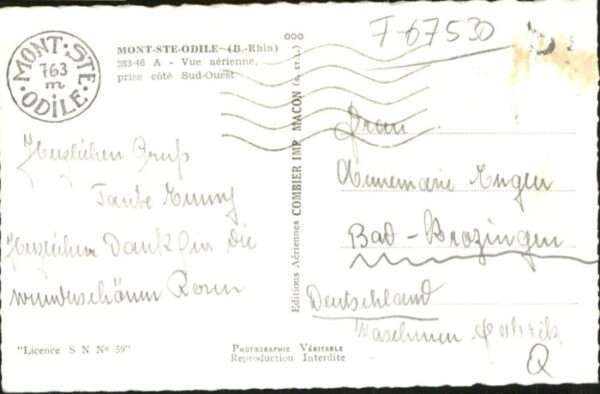 MONT-STE-ODILE
763 m
MONT-STE-ODILE-(B.-Rhin)
283-46 A - Vue aérienne,
prise côté Sud-Ouest
F-67530
Herzlichen Gruß
Tante
Herzlichen Dank für die
wunderschönen Rosen
"Licence S N N° 59"
ooo
Editions Aériennes COMBIER IMP MACON (S. et L.)
PHOTOGRAPHIE VÉRITABLE
Reproduction Interdite
Frau
Annemarie Enger
Bad-Krozingen
Deutschland
Maschinen Fabrik
Q